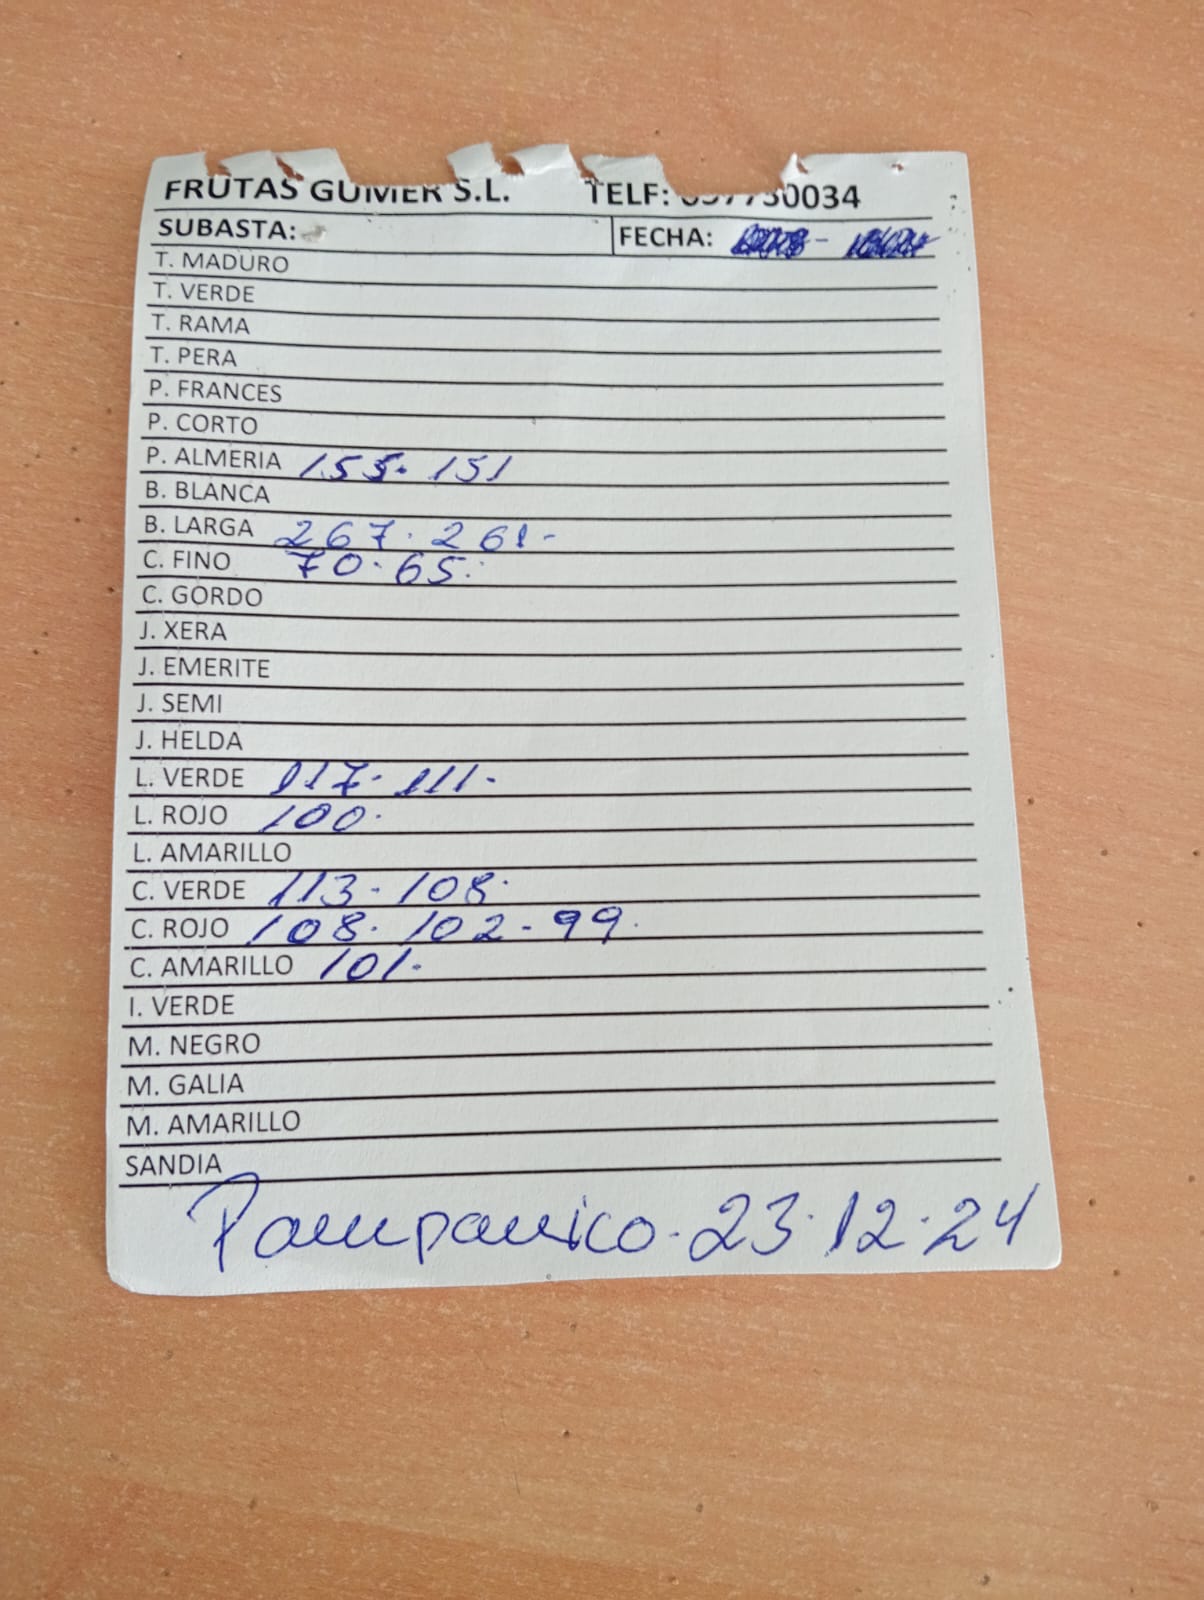 FRUTAS GUMER S.L. TELF:
SUBASTA: FECHA:
T. MADURO
T. VERDE
T. RAMA
T. PERA
P. FRANCES
P. CORTO
P. ALMERIA 155. 151
B. BLANCA
B. LARGA 267. 261-
C. FINO 70. 65.
C. GORDO
J. XERA
J. EMERITE
J. SEMI
J. HELDA
L. VERDE 117. 111-
L. ROJO 100.
L. AMARILLO
C. VERDE 113-108.
C. ROJO 108. 102-99.
C. AMARILLO 101-
I. VERDE
M. NEGRO
M. GALIA
M. AMARILLO
SANDIA
Pampanico. 23.12.24